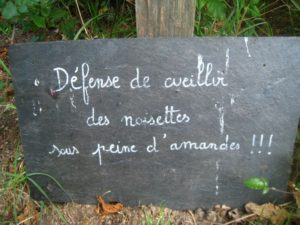 Défense de cueillir
des noisettes
sous peine d'amandes !!!